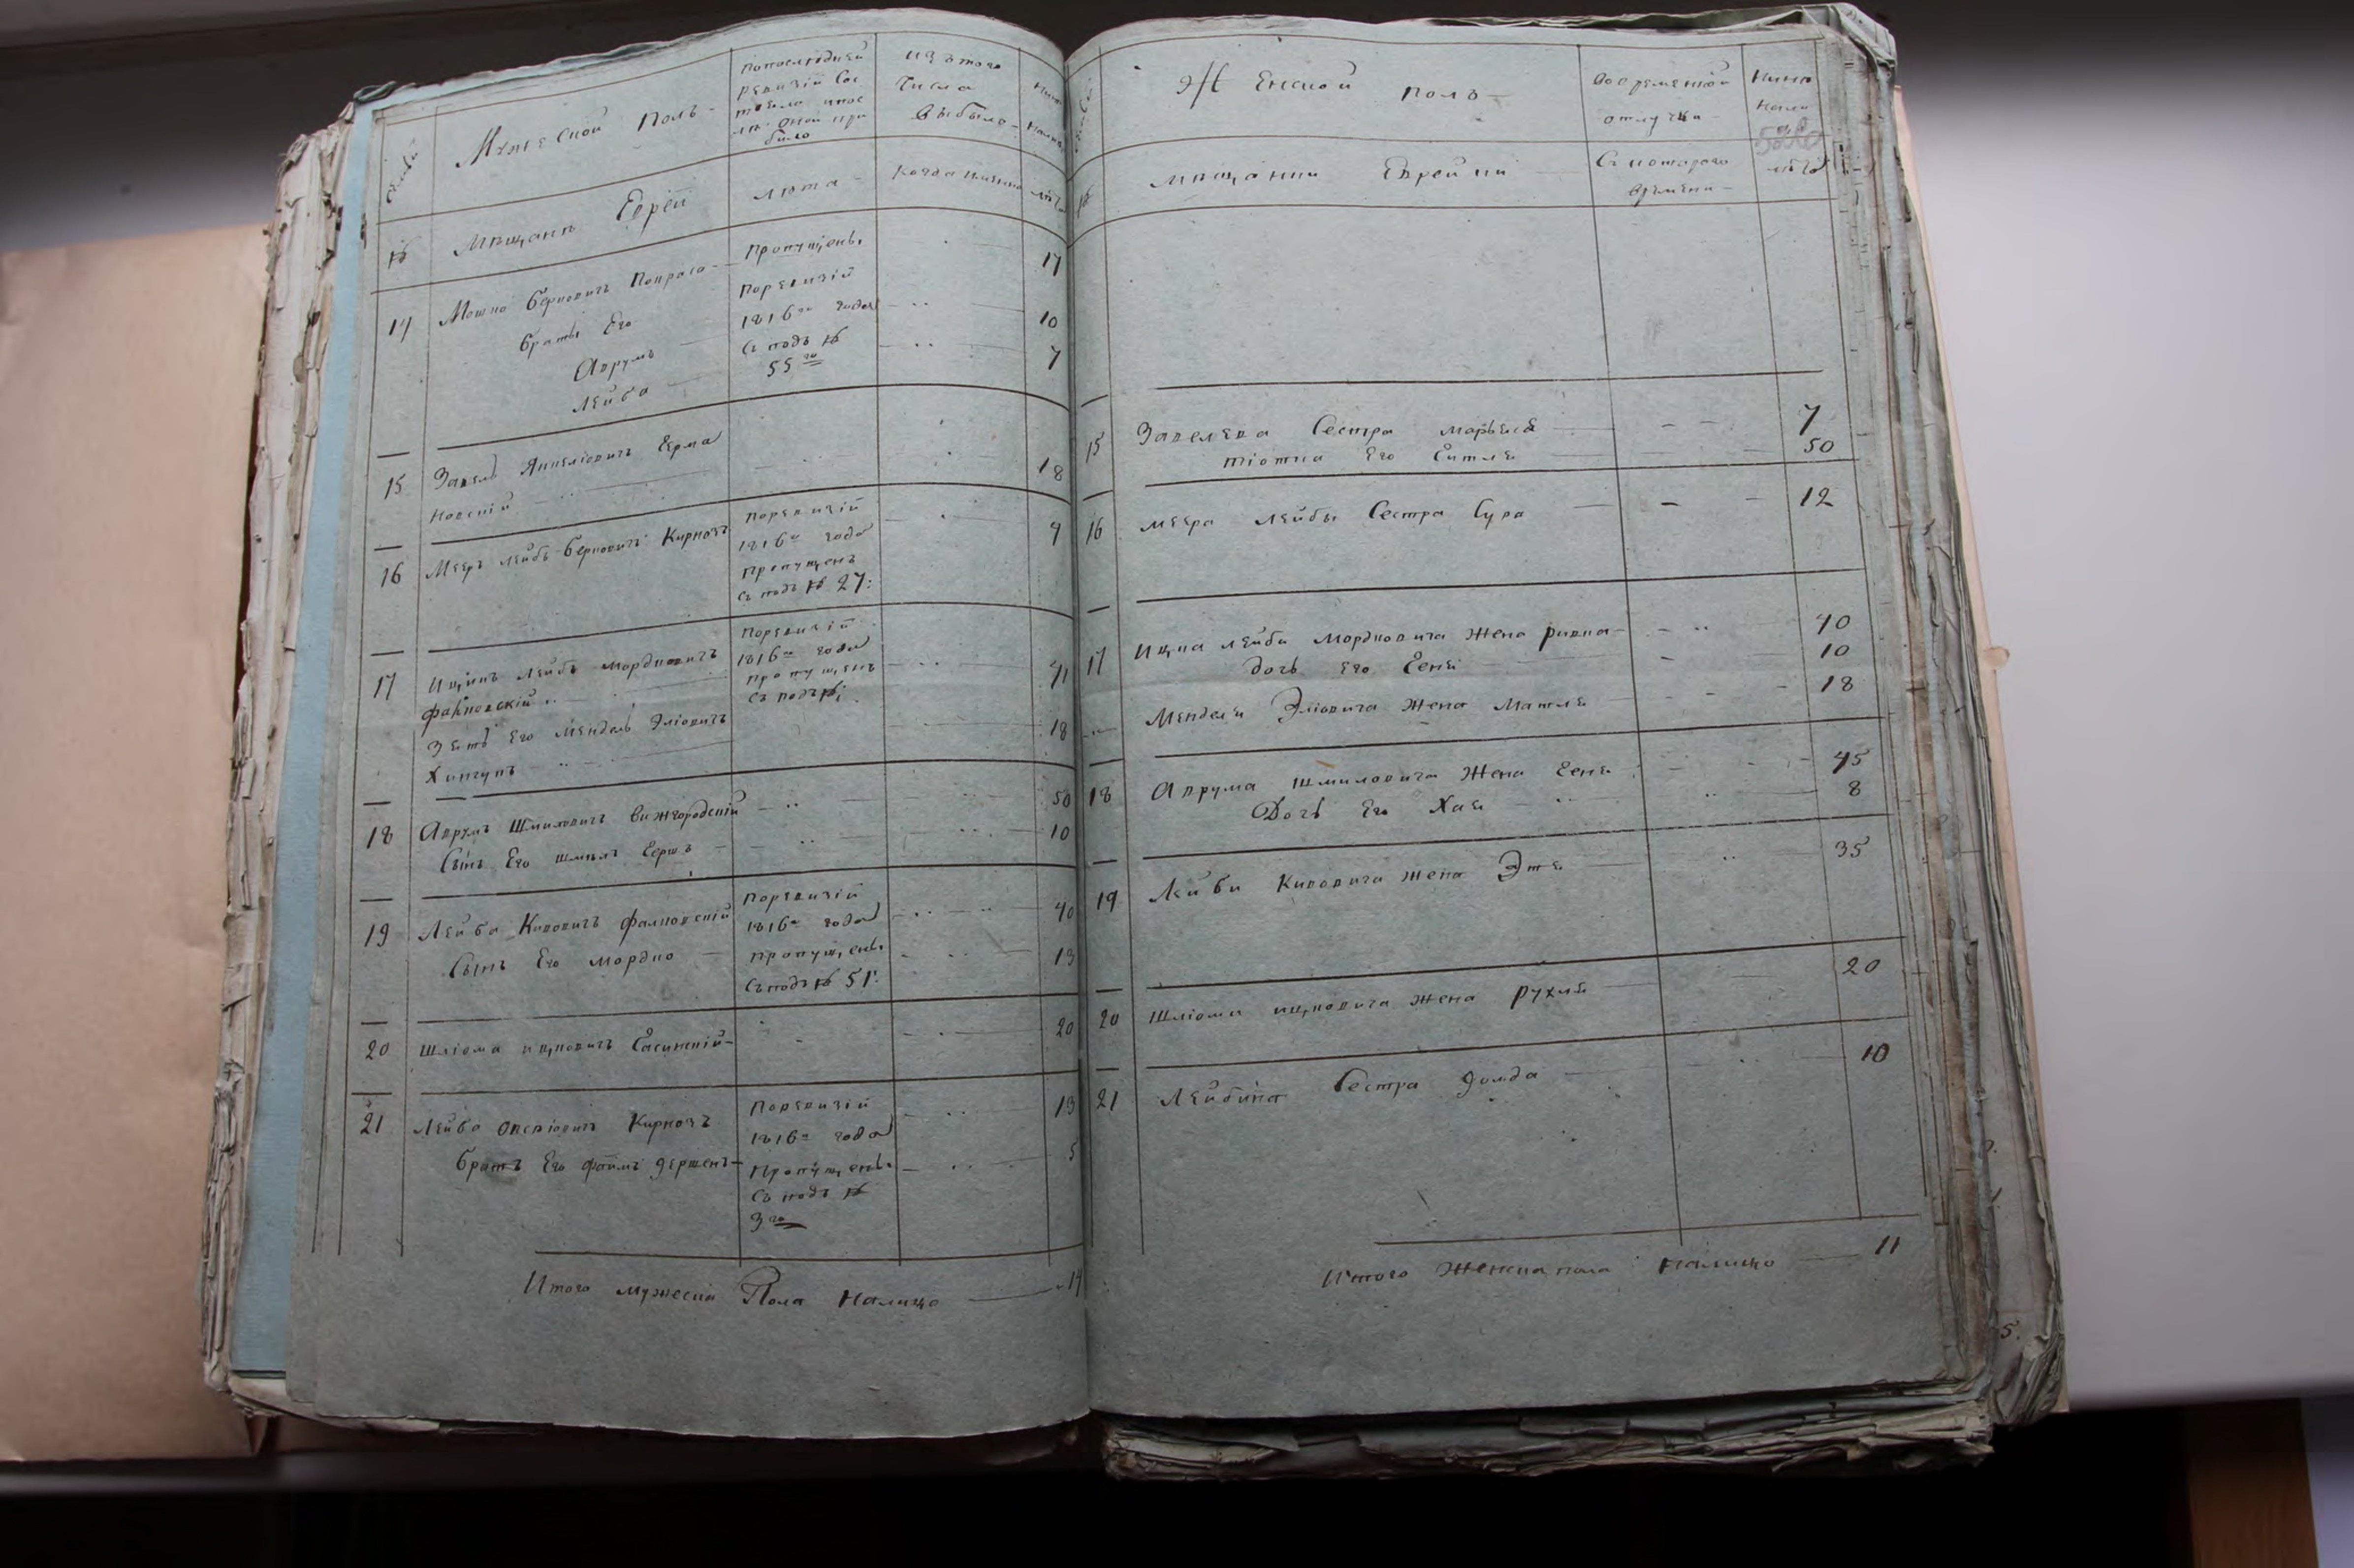 Мужеской Полъ
Попоследней
ревизіи Сос
тояло ипос
ле оной при
было
изътого
Числа
Выбыло
Ныне
№
Мещане Евреи
лета
Когда именно
лета
14
Мошко Берковичъ
Пропущены
17
братья Его
поревизіи
Аврумъ
1816го года
10
Лейба
съ подъ №
7
55го
15
Завель Янкеліовичъ Ерма
18
новскій
16
Мееръ Лейбъ Берковичъ Кирнозъ
поревизіи
9
1816го года
пропущенъ
съ подъ № 27:
17
Ицикъ Лейбъ Мордковичъ
поревизіи
1816го года
41
пропущенъ
съ подъ №
Зять Его Мендель Эліовичъ
18
18
Аврумъ Шмиловичъ Вижгородскій
50
Сынъ Его Шмиль Гершъ
10
19
Лейба Кивовичъ Фалковскій
поревизіи
40
1816го года
Сынъ Его Мордко
пропущены
13
съ подъ № 51:
20
Шліома Ицковичъ Сасинскій
20
21
Лейба Овсіовичъ Кирнозъ
поревизіи
13
1816го года
братъ Его
Пропущены
5
съ подъ №
3го
Итого мужеска Пола Налицо 14
Женской полъ
Вовременной
отлучки
Ныне
нали
Мещанки Еврейки
Скотораго
времени
лета
15
Завелева Сестра Марьяся
7
тіотка Его Ситля
50
16
Меера Лейбы Сестра Сура
12
17
Ицка Лейби Мордковича Жена ривка
40
дочь Его Сеня
10
Менделя Эліовича Жена Матля
18
18
Аврума Шмиловича Жена Сеня
45
Дочь Его Хая
8
19
Лейби Кивовича Жена Этя
35
20
Шліоми Ицковича Жена Рухля
20
21
Лейбина Сестра Голда
10
Итого Женска пола Налицо 11